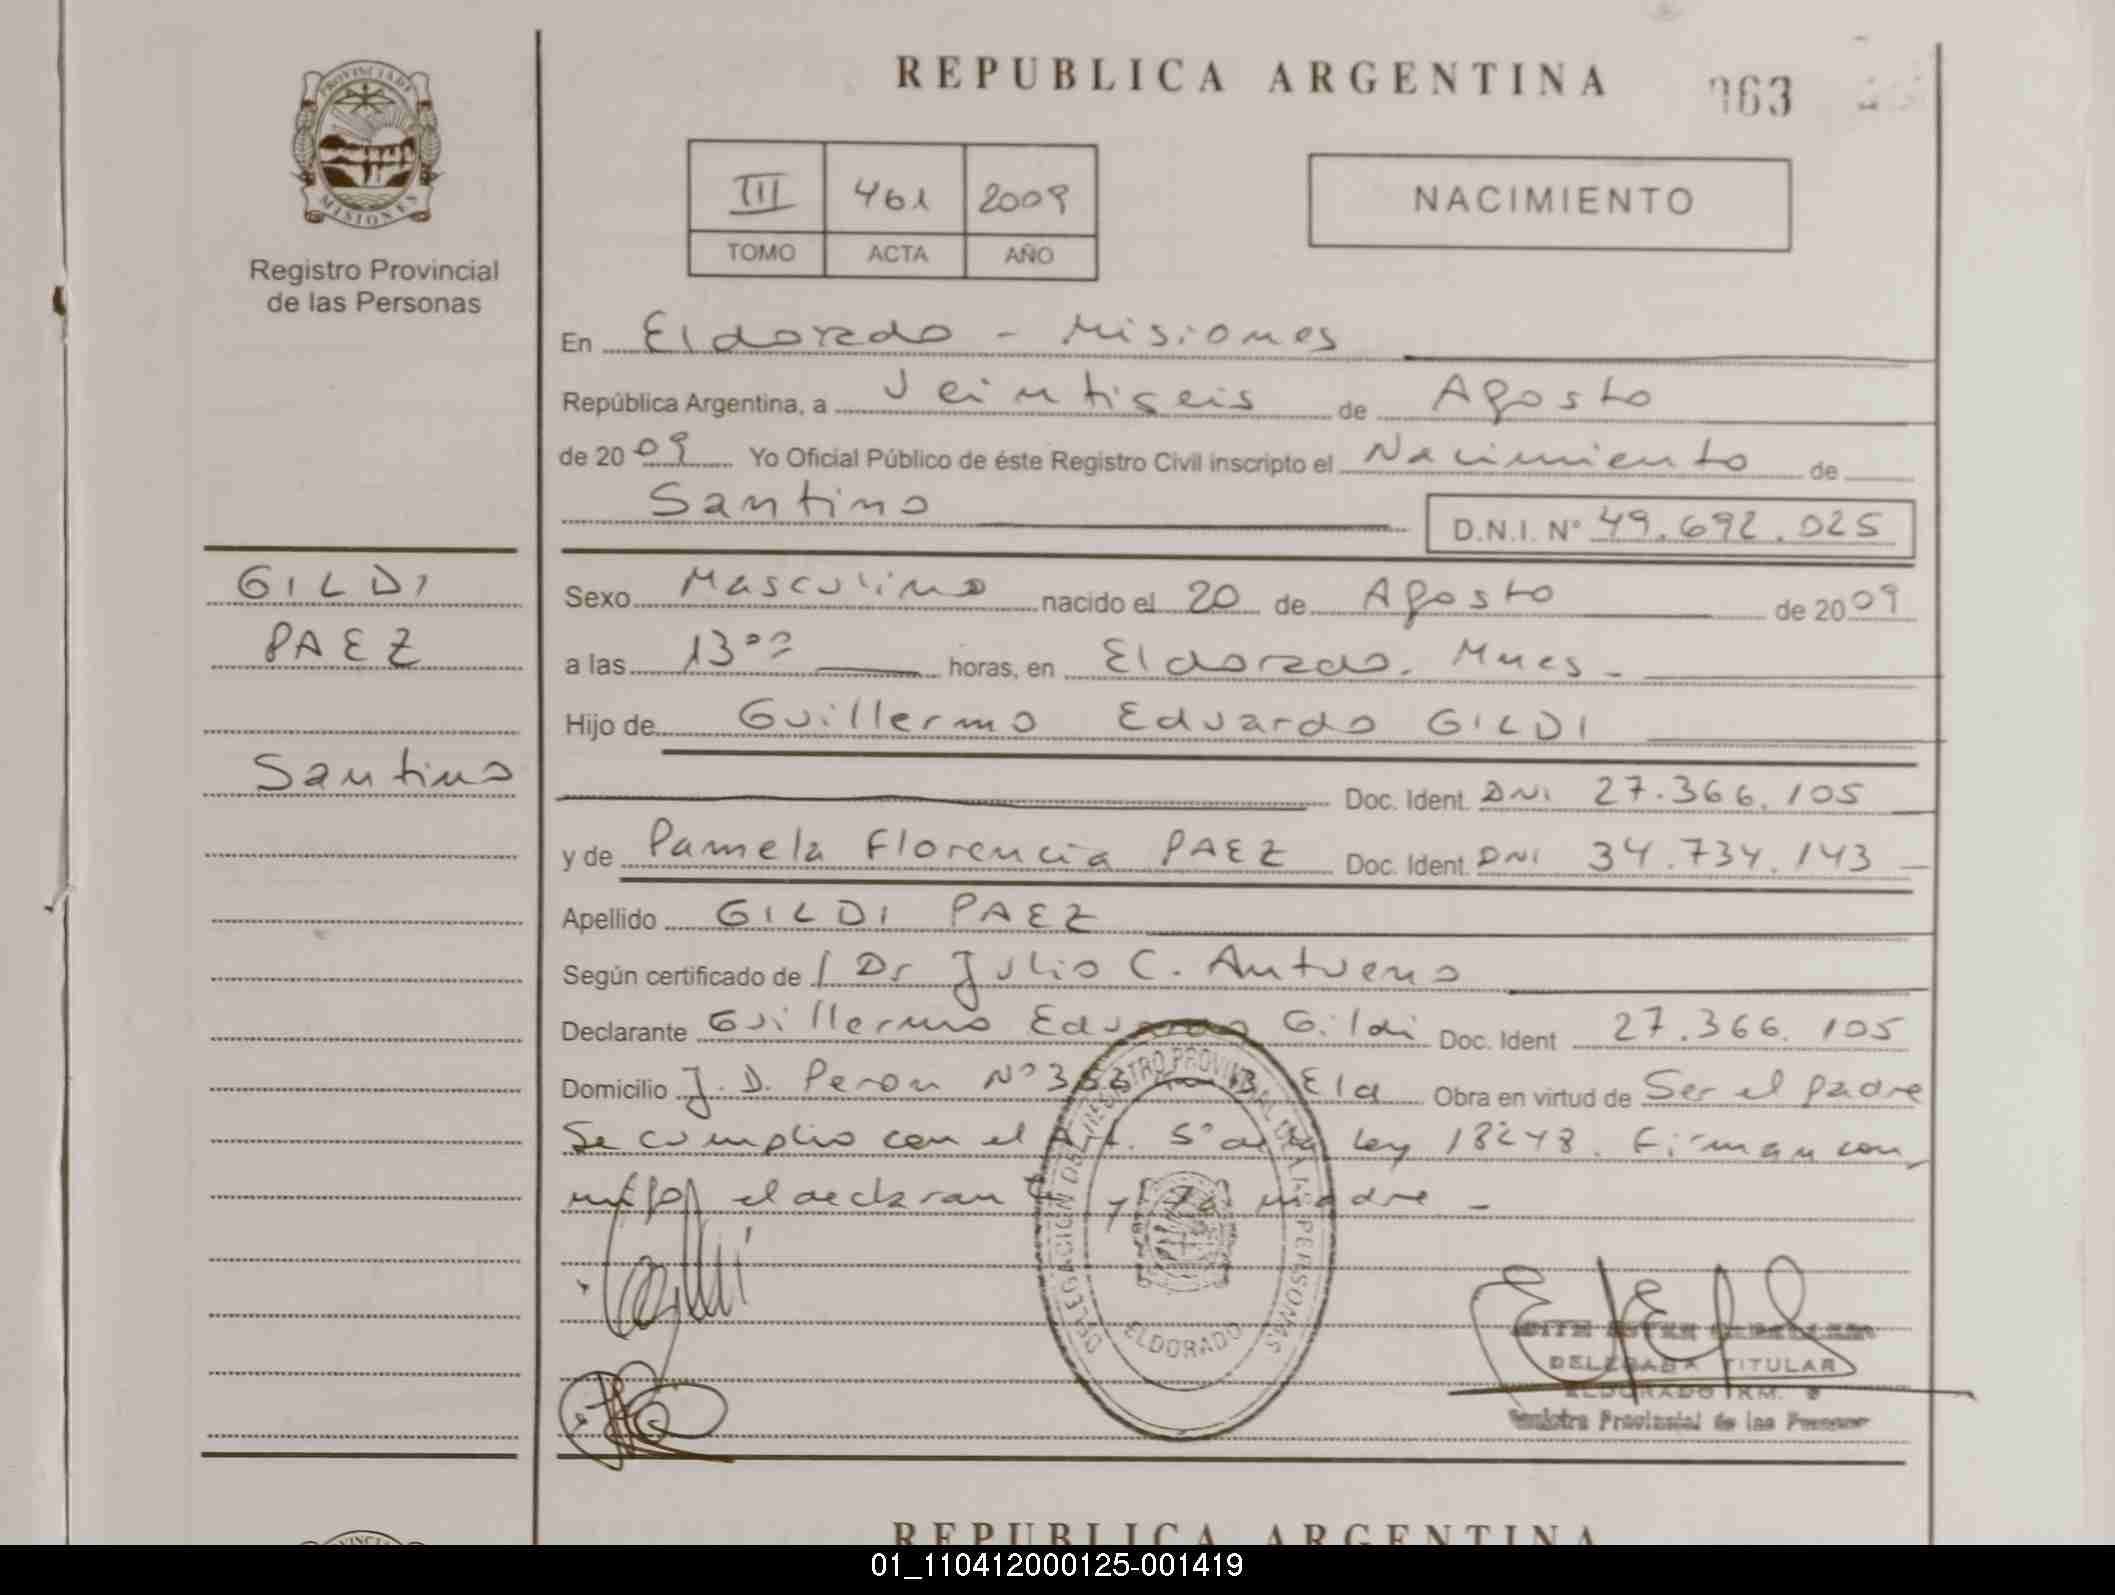 REPUBLICA ARGENTINA
063
PROVINCIA DE
MISIONES
Registro Provincial
de las Personas
III 461 2009
TOMO ACTA AÑO
NACIMIENTO
En Eldorado - Misiones
República Argentina, a Veintiseis de Agosto
de 2009 Yo Oficial Público de éste Registro Civil inscripto el Nacimiento de
Santino D.N.I. N° 49.692.025
GILDI
PAEZ
Santino
Sexo Masculino nacido el 20 de Agosto de 2009
a las 13 00 horas, en Eldorado. Mnes -
Hijo de Guillermo Eduardo GILDI
Doc. Ident. DNI 27.366.105
y de Pamela Florencia PAEZ Doc. Ident. DNI 34.734.143
Apellido GILDI PAEZ
Según certificado de Dr Julio C. Antueno
Declarante Guillermo Eduardo Gildi Doc. Ident 27.366.105
Domicilio J. D. Peron N° Eld Obra en virtud de Ser el padre
Se cumplio con el Art. 5° de la Ley 18248. Firman con
migo el declarante y la madre -
DELEGACION DEL REGISTRO PROVINCIAL DE LAS PERSONAS
ELDORADO
DELEGADA TITULAR
ELDORADO KM. 9
Registro Provincial de las Personas
REPUBLICA ARGENTINA
01_110412000125-001419